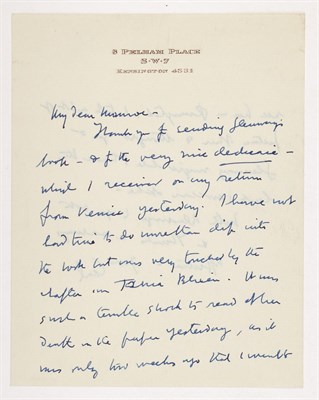 8 PELHAM PLACE
S·W·7
KENSINGTON 4521
My dear Monroe –
Thank you for sending Glenway's
book – & for the very nice dedicace –
which I received on my return
from Venice yesterday. I have not
had time to do more than dip into
the book but was very touched by the
chapter on Tania Blixen. It was
such a terrible shock to read of her
death in the paper yesterday, as it
was only two weeks ago that I went